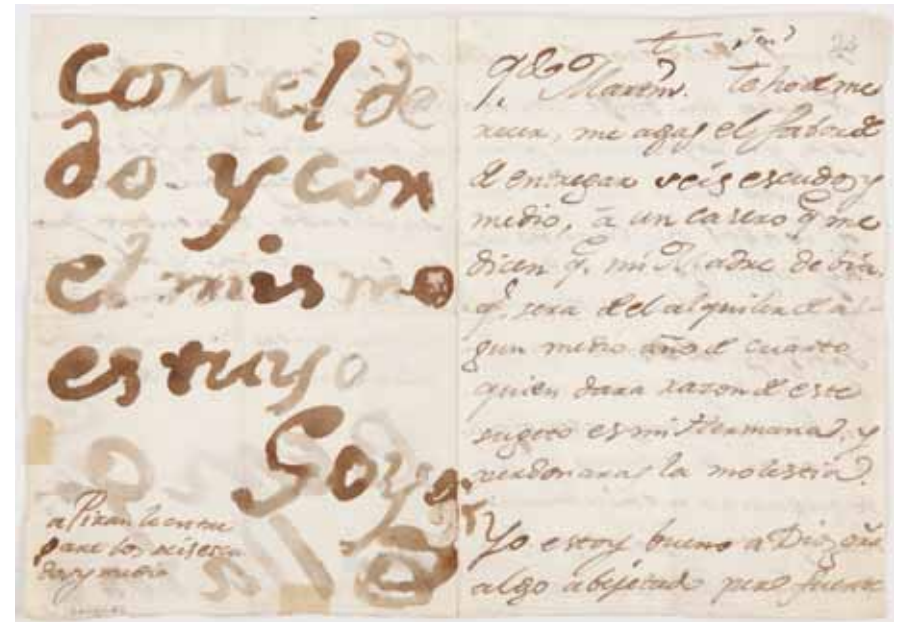 con el de
do y con
el mismo
es tuyo
Goya
a Piran le entre
gare los seis escu
dos y medio
Martin. te hode me
recer, me agas el fabor de
de entregar seis escudos y
medio, a un casero q.e me
dicen q.e mi Madre debia.
q.e sera del alquiler de al-
gun medio año de cuarto
quien dara razon de este
sugeto es mi Hermana, y
perdonaras la molestia.
Yo estoy bueno a Dios
algo pero fuerte